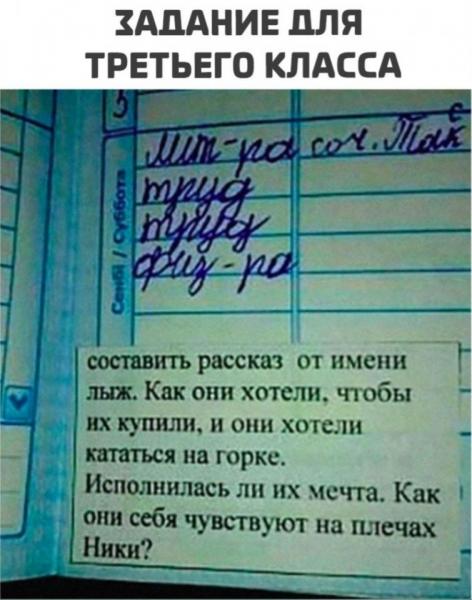 ЗАДАНИЕ ДЛЯ
ТРЕТЬЕГО КЛАССА
Сенбі / Суббота
Лит-ра соч. Так
труд
труд
физ-ра
составить рассказ от имени
лыж. Как они хотели, чтобы
их купили, и они хотели
кататься на горке.
Исполнилась ли их мечта. Как
они себя чувствуют на плечах
Ники?